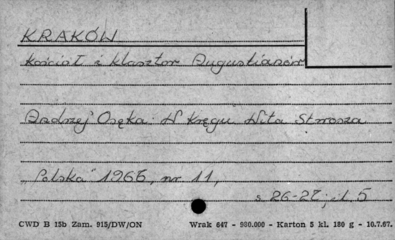 KRAKÓW
Kościół i klasztor Augustianów
Andrzej Osęka: W kręgu Wita Stwosza
"Polska" 1965, nr. 11,
s. 26-27; il. 5
CWD B 15b Zam. 915/DW/ON Wrak 647 - 980.000 - Karton 5 kl. 180 g - 10.7.67.